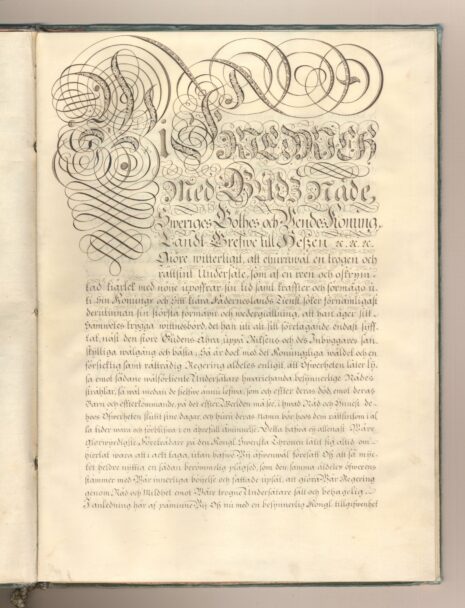 Wi FRIEDRICH
Med GUDZ Nåde,
Sweriges Göthes och Wendes Konung,
Landt Grefwe till Heßen &c. &c. &c.
Giöre witterligit, att ehuruwäl en trogen och
rättsint Undersåte, som af en wen och oskrym-
tad kiärlek med nöije upoffrar sin tid samt kraffter och förmågo u-
ti sin Konungs och Sitt kiära Fäderneslands Tienst, söker förnämligast
derutinnan sin största förmåhn och wedergiällning, att han äger sitt
Samwetes trygga wittnesbörd, det han uti alt sitt företagande endast syff-
tat, näst den store Gudens Ähra, uppå Riksens och des Inbyggares san-
skylliga wälgång och bästa; Så är doch med det Konungsliga wäldet och en
försichtig samt rättrådig Regering aldeles enligit, att Öfwerheten låter ly-
sa emot sådane wälförtiente Undersåtare hwarjehanda besynnerlige Nådes
strählar, så wäl medan de sielfwe ännu lefwa, som och effter deras död, emot deras
Barn och effterkommande, på det effter Werlden må see, i hwad Nåd och Ynnest de
hoos Öfwerheten slutit sine dagar, och huru deras namn bör hoos dem rättsinnom i al-
la tider wara och förblifwa i en ährefull åminnelse. Detta hafwa ey allenast Wåre
Glorwyrdigste Företrädare på den Kongl. Swenska Thronen låtit sig altid om-
sorgeligt wara att i acht taga, utan hafwe Wij äfwenwäl förestält Oß att så my-
ket heldre nyttia en sådan berömmelig plägsed, som den samma aldeles öfwerens-
stämmer med Wår innerliga böijelse och fattade upsåt, att giöra Wår Regering
genom Nåd och Mildhet emot Wåre trogne Undersåtare sält och behagelig.
I anledning här af påminne Wij Oß nu med en besynnerlig Kongl. tillgifwenhet